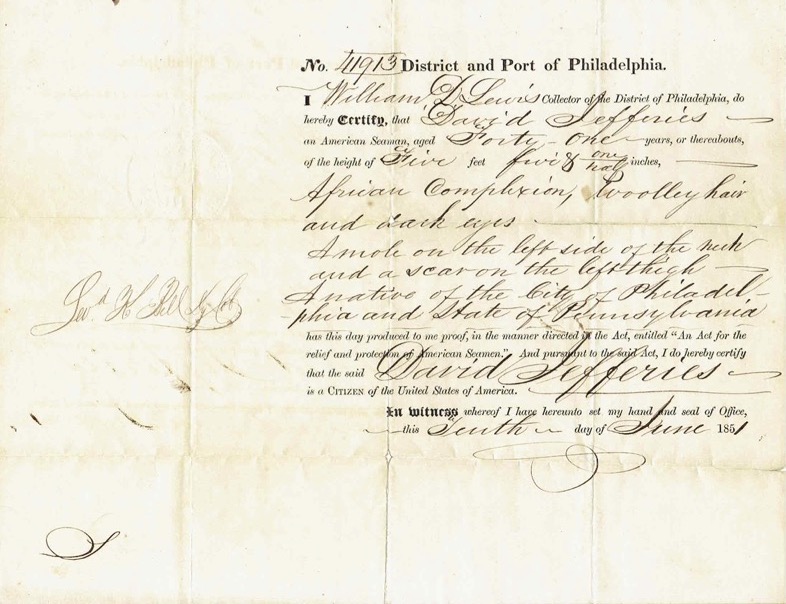 No. 41913 District and Port of Philadelphia.
I William D Lewis Collector of the District of Philadelphia, do
hereby Certify, that David Jefferies
an American Seaman, aged Forty-one years, or thereabouts,
of the height of Five feet five & one half inches,
African Complexion, Woolley hair
and dark eyes
A mole on the left side of the neck
and a scar on the left thigh
A native of the City of Philadel-
phia and State of Pennsylvania
has this day produced to me proof, in the manner directed in the Act, entitled "An Act for the
relief and protection of American Seamen." And pursuant to the said Act, I do hereby certify
that the said David Jefferies
is a CITIZEN of the United States of America.
In witness whereof I have hereunto set my hand and seal of Office,
this Tenth day of June 1851